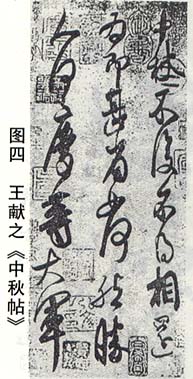 中秋不復不得相還
為即甚省如何然勝
人何慶等大軍
图四 王献之《中秋帖》